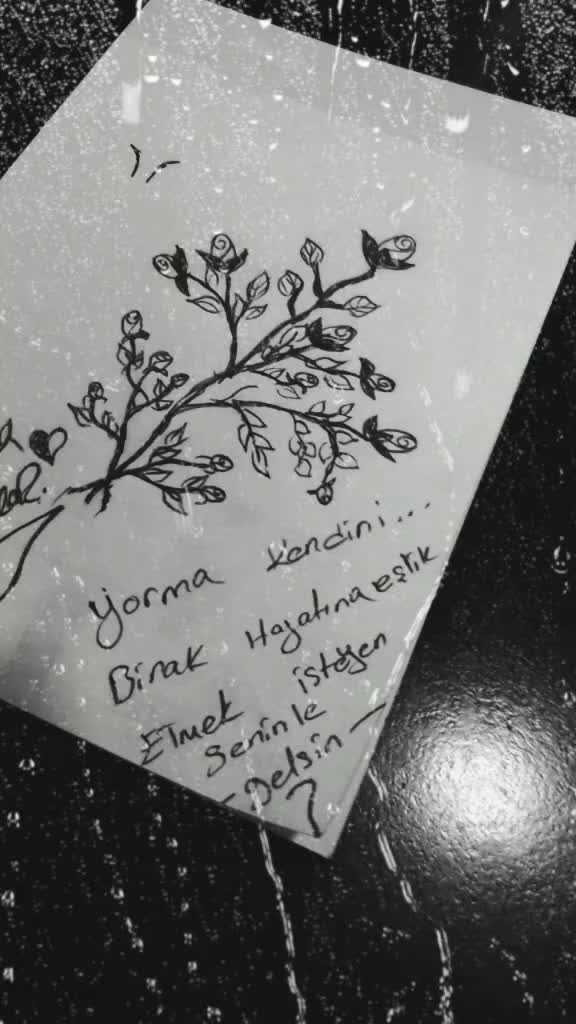 yorma kendini...
Bırak Hayatına eşlik
Etmek isteyen
Seninle
- Gelsin -